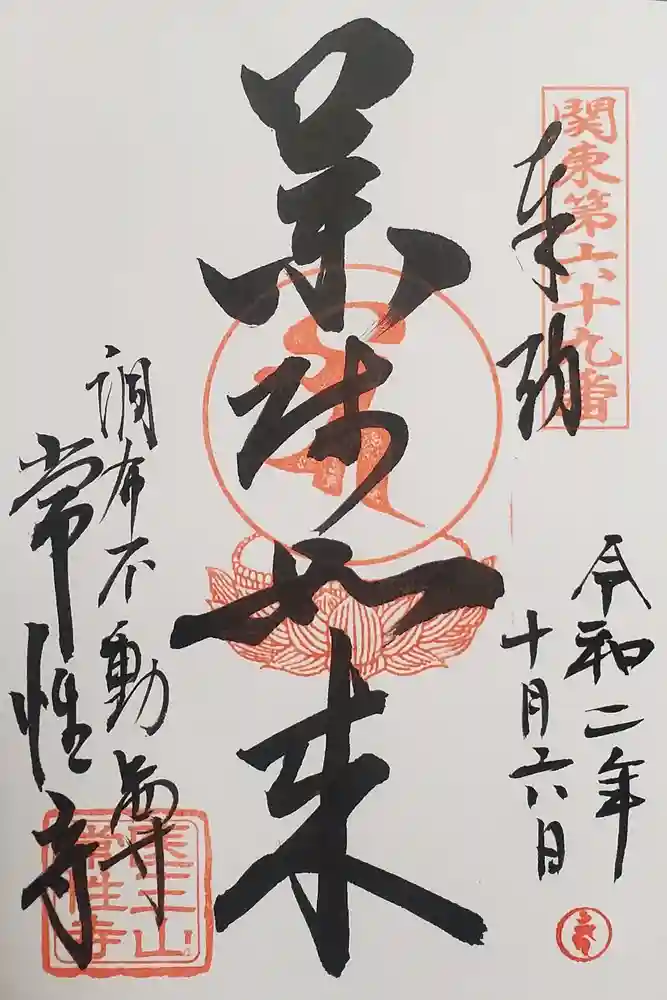 関東第六十九番
奉拝
令和二年
十月六日
薬師如来
調布不動尊
常性寺
医王山
常性寺